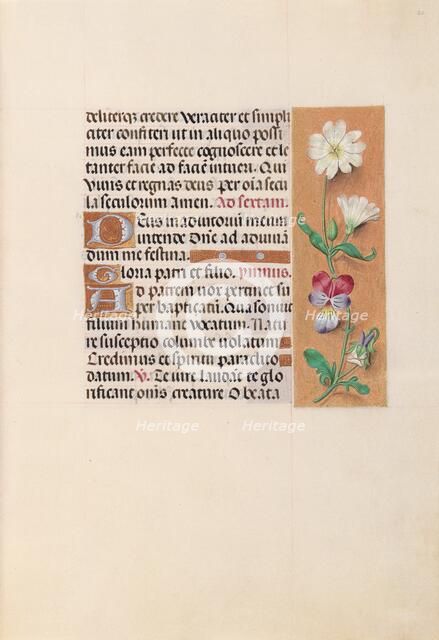 deliterq3 credere veraciter et simpli
citer confiteri ut in aliquo possi
mus eam perfecte cognoscere et le
tanter facie ad faciē intueri. Qui
vivis et regnas deus per oīa secu
la seculorum amen. Ad sextam.
Deus in adiutoriū meum
intende Dnē ad adiuvā
dum me festina.
Gloria patri et filio. ymnus.
Ad patrem vox pertinet su
per baptizatū. Qua sonuit
filium humane vocatum. Natu
re susceptio columbe
Credimus et spiritū paraclito
datum. V. Te iure laudāt te glo
rificant ōnis creature O beata
Heritage
Heritage
Heritage
Heritage
Heritage
Heritage